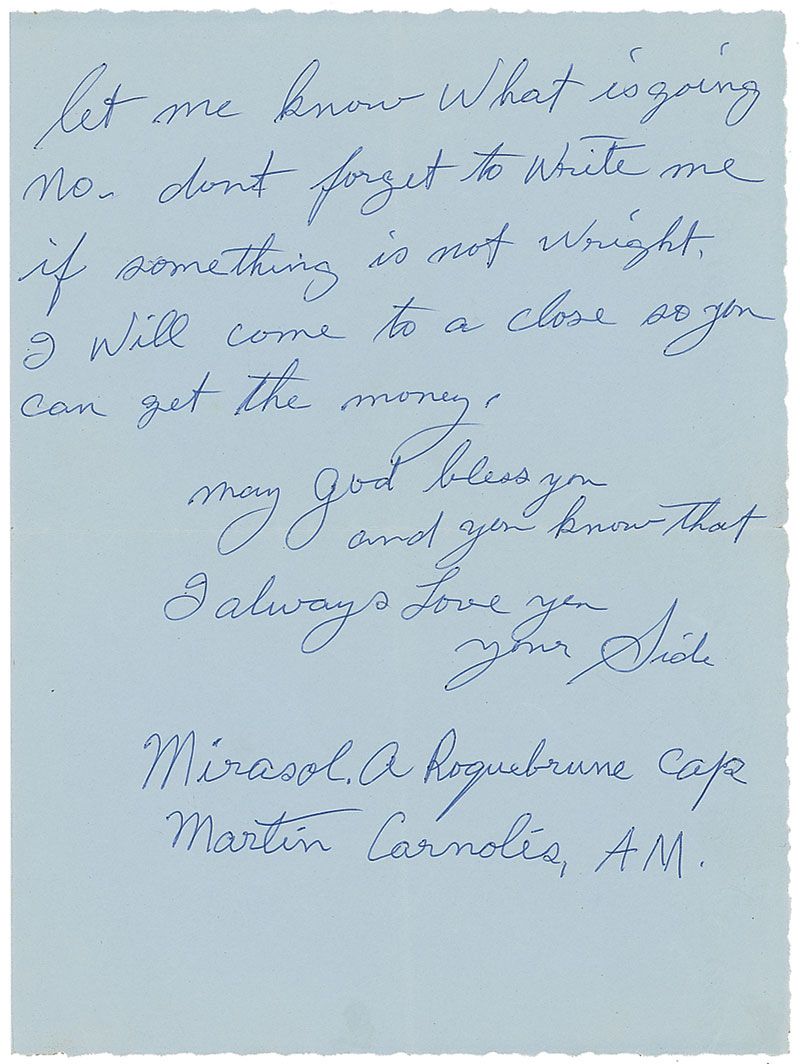 let me know What is going
no. dont forget to Write me
if something is not Wright.
I Will come to a close so you
can get the money.
may god bless you
and you know that
I always Love you
your Side
Mirasol. A Roquebrune Cap
Martin Carnolés, A M.